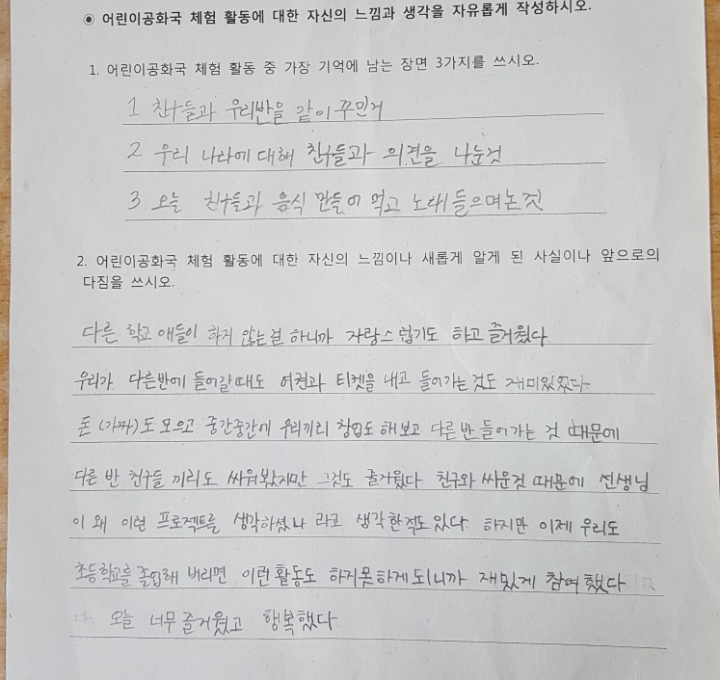 ◉ 어린이공화국 체험 활동에 대한 자신의 느낌과 생각을 자유롭게 작성하시오.
1. 어린이공화국 체험 활동 중 가장 기억에 남는 장면 3가지를 쓰시오.
1 친구들과 우리반을 같이 꾸민거
2 우리 나라에 대해 친구들과 의견을 나눈것
3 오늘 친구들과 음식 만들어 먹고 노래 들으며 논것
2. 어린이공화국 체험 활동에 대한 자신의 느낌이나 새롭게 알게 된 사실이나 앞으로의
다짐을 쓰시오.
다른 학교 애들이 하지 않는걸 하니까 자랑스럽기도 하고 즐거웠다
우리가 다른반에 들어갈때도 여권과 티켓을 내고 들어가는 것도 재미있었다
돈 (가짜)도 모으고 중간중간에 우리끼리 창업도 해보고 다른 반 들어가는 것 때문에
다른 반 친구들 끼리도 싸워봤지만 그것도 즐거웠다 친구와 싸운것 때문에 선생님
이 왜 이런 프로젝트를 생각하셨나 라고 생각한적도 있다. 하지만 이제 우리도
초등학교를 졸업해 버리면 이런 활동도 하지못하게 되니까 재밌게 참여했다
다. 오늘 너무 즐거웠고 행복했다